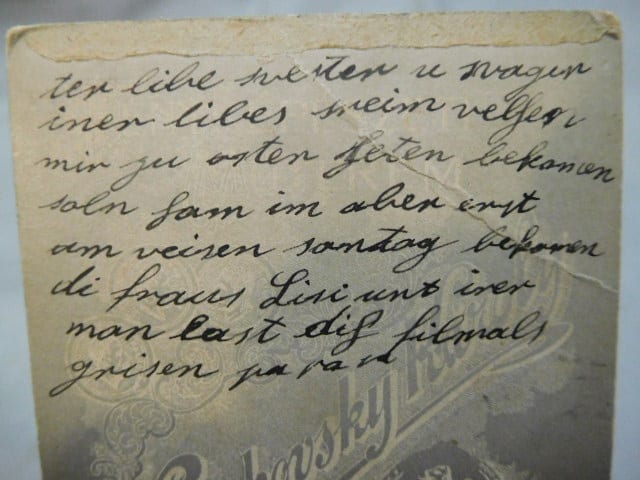 ter libe swester u swager
iner libes sreim velgen
mir zu osten heten bekomen
soln ham im aber erst
am veisen sontag bekomen
di fraus Lisi unt irer
man last dig filmals
grisen pa ra a